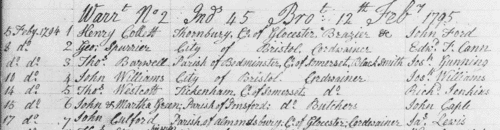 Warrt. No 2 Ind 45 Brot. 12th Feby 1795
5 Feby. 1794 1 Henry Collett Thornbury, C. of Glocester Brazier & John Ford
8 do 2 Geo: Spurrier City of Bristol Cordwainer Edwd. T. Cann
do do 3 Thos. Barwell Parish of Bedminster, C. of Somerset, Black Smith Jos: Gunning
10 do 4 John Williams City of Bristol Cordwainer Jos: Williams
14 do 5 Thos. Westcott Tickenham, C. of Somerset, do Richd. Jenkins
15 do 6 John & Martha Green; Parish of Twyford: do Butchers John Cagle
17 do 7 John Culford Parish of almondsbury; C. of Glocester; Cordwainer Jas: Lewis